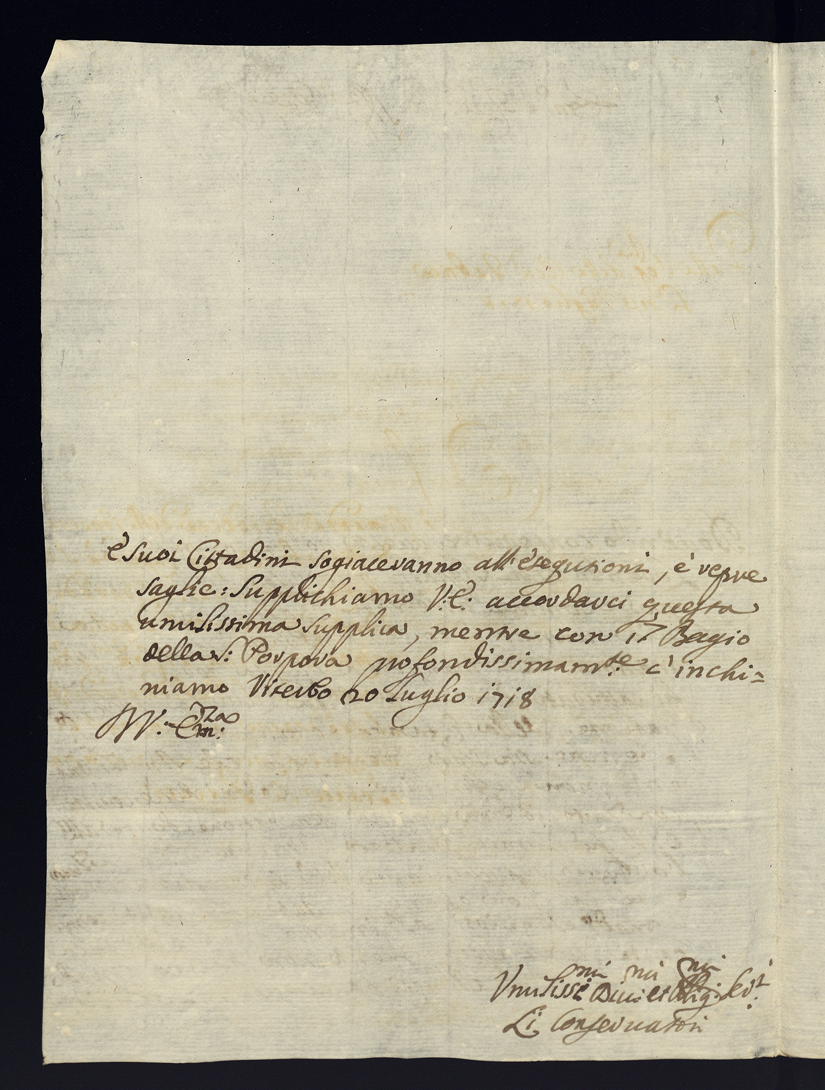 è suoi Cittadini sogiaceranno all'esegutioni, è repre
saglie: Supplichiamo V: E: accordarci questa
umilissima supplica, mentre con il Bagio
della S: Porpora profondissimam:te c'inchi=
niamo Viterbo 20 Luglio 1718
V: Em:za
Umilissi:mi Div:mi et Oblig:mi Ser:i
Li Conservatori